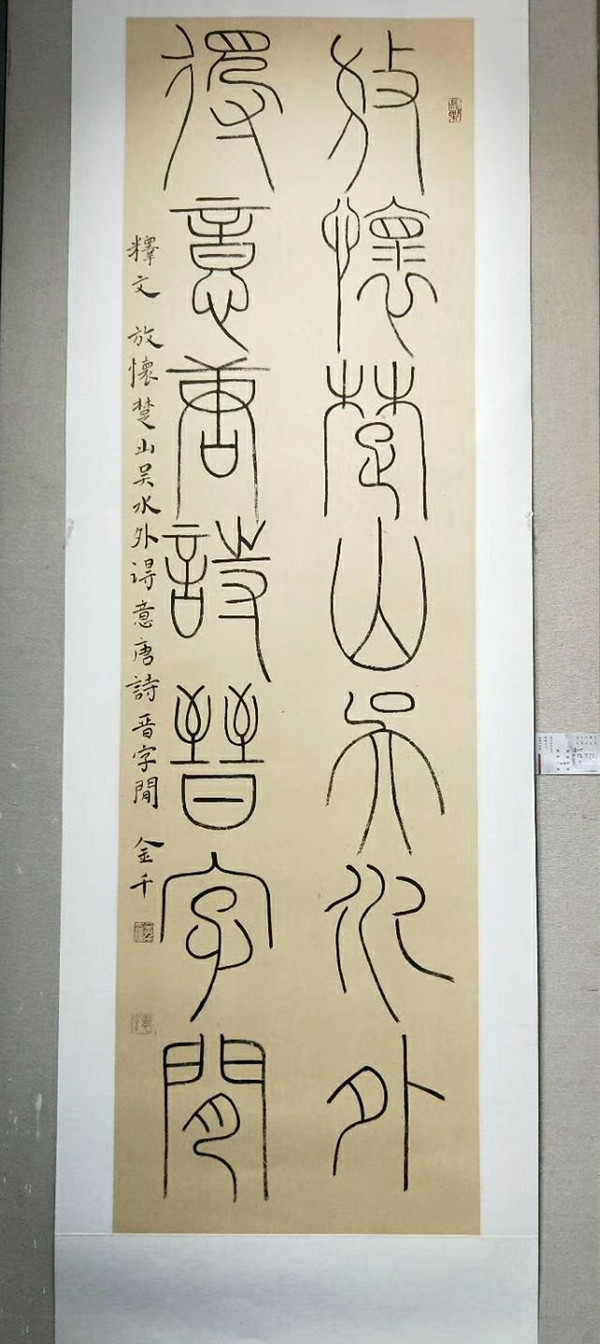 放懷楚山吳水外
得意唐詩晉字閒
釋文 放懷楚山吳水外得意唐詩晉字閒 金千